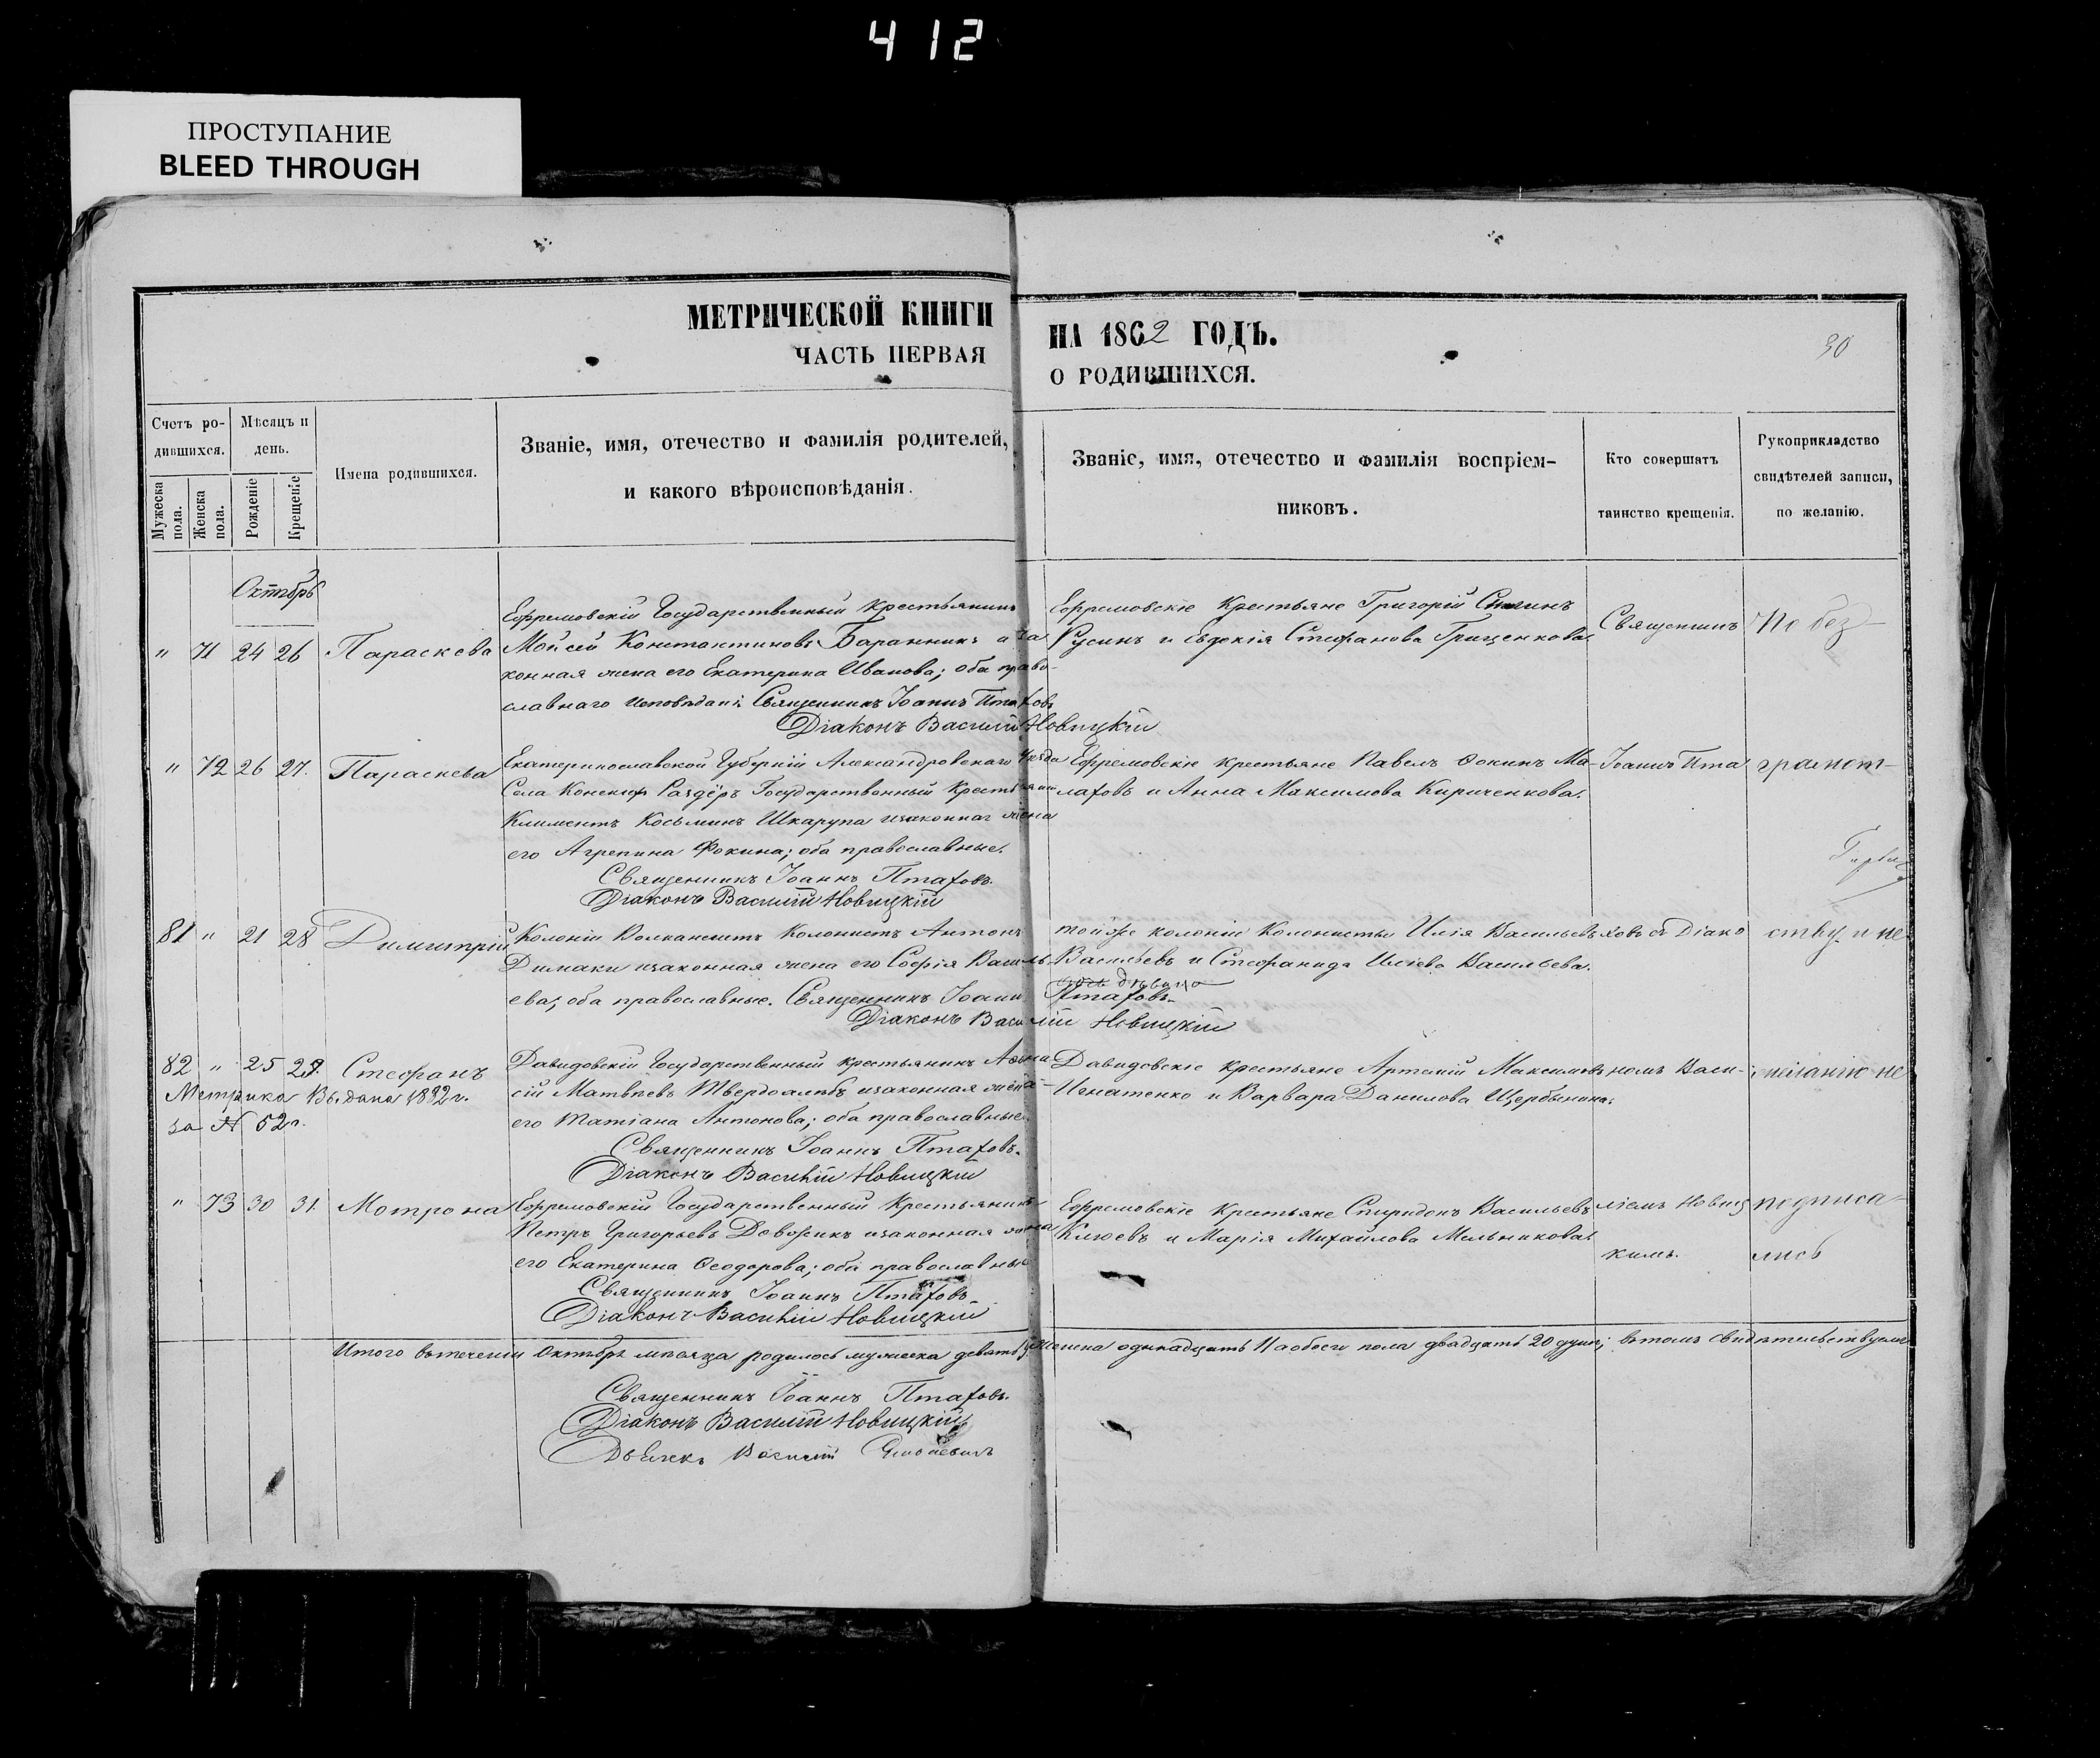 412
ПРОСТУПАНИЕ
BLEED THROUGH
МЕТРИЧЕСКОЙ КНИГИ
ЧАСТЬ ПЕРВАЯ
Счетъ ро-
дившихся.
Мѣсяцъ и
день.
Имена родившихся.
Званіе, имя, отечество и фамилія родителей,
и какого вѣроисповѣданія.
Мужеска пола.
Женска пола.
Рожденіе
Крещеніе
Октябрь
" 71 24 26 Параскева
Ефремовскій Государственный крестьянинъ
Мойсей Константиновъ Баранникъ и за
конная жена его Екатерина Иванова; оба право-
славнаго Священникъ Іоаннъ Птаховъ
Діаконъ Василій Новицкій
" 72 26 27. Параскева
Екатеринославской Губерніи Александровскаго уѣзда
Села Конскихъ Раздёръ Государственный Крестьянин
Климентъ Косьминъ Шкарупа изаконная жена
его Агрепина Фокина; оба православные.
Священникъ Іоаннъ Птаховъ.
Діаконъ Василій Новицкій
81 " 21 28 Димитрій
Колоніи Колонистъ Антонъ
Димаки изаконная жена его Софія Василь-
ева; оба православные. Священникъ Іоаннъ Птаховъ.
Діаконъ Василій Новицкій
82 " 25 29. Стефанъ
Метрика Выдана 1882 г.
за № 52 г.
Давидовскій Государственный крестьянинъ Афана
сій Матвѣевъ Твердохлѣбъ изаконная жена
его Татіана Антонова; оба православные.
Священникъ Іоаннъ Птаховъ.
Діаконъ Василій Новицкій
" 73 30 31. Мотрона
Ефремовскій Государственный Крестьянинъ
Петръ Григорьевъ Довожикъ изаконная жена
его Екатерина Ѳеодорова; оба православные
Священникъ Іоаннъ Птаховъ
Діаконъ Василій Новицкій
Итого втеченіи Октябрѣ мѣсяца родилось мужеска девять 9, женска одинадцать 11 а обоего пола двадцать 20 душъ; вътомъ свидѣтельствуемъ
Священникъ Іоаннъ Птаховъ.
Діаконъ Василій Новицкій
Дьячекъ Василій
НА 1862 ГОДЪ.
О РОДИВШИХСЯ.
30
Званіе, имя, отечество и фамилія воспріем-
никовъ.
Кто совершатъ
таинство крещенія.
Рукоприкладство
свидѣтелей записи,
по желанію.
Ефремовскіе Крестьяне Григорій
Русинъ и Евдокія Стефанова Грищенкова.
Ефремовскіе крестьяне Павелъ Фокинъ Ма-
лаховъ и Анна Максимова Кириченкова.
тойже колоніи Колонисты Илія Васильевъ
Васильевъ и Стефанида Иліева Васильева.
Давидовскіе крестьяне Артемій Максимовъ
Игнатенко и Варвара Данилова Щербынина.
Ефремовскіе Крестьяне Спиридонъ Васильевъ
Клюевъ и Марія Михайлова Мельникова.
Священникъ
Іоаннъ Пта
ховъ съ Діако
номъ Васи-
ліемъ Новиц
кимъ.
По без-
грамот-
ству и не
желанію не
подписа-
лись